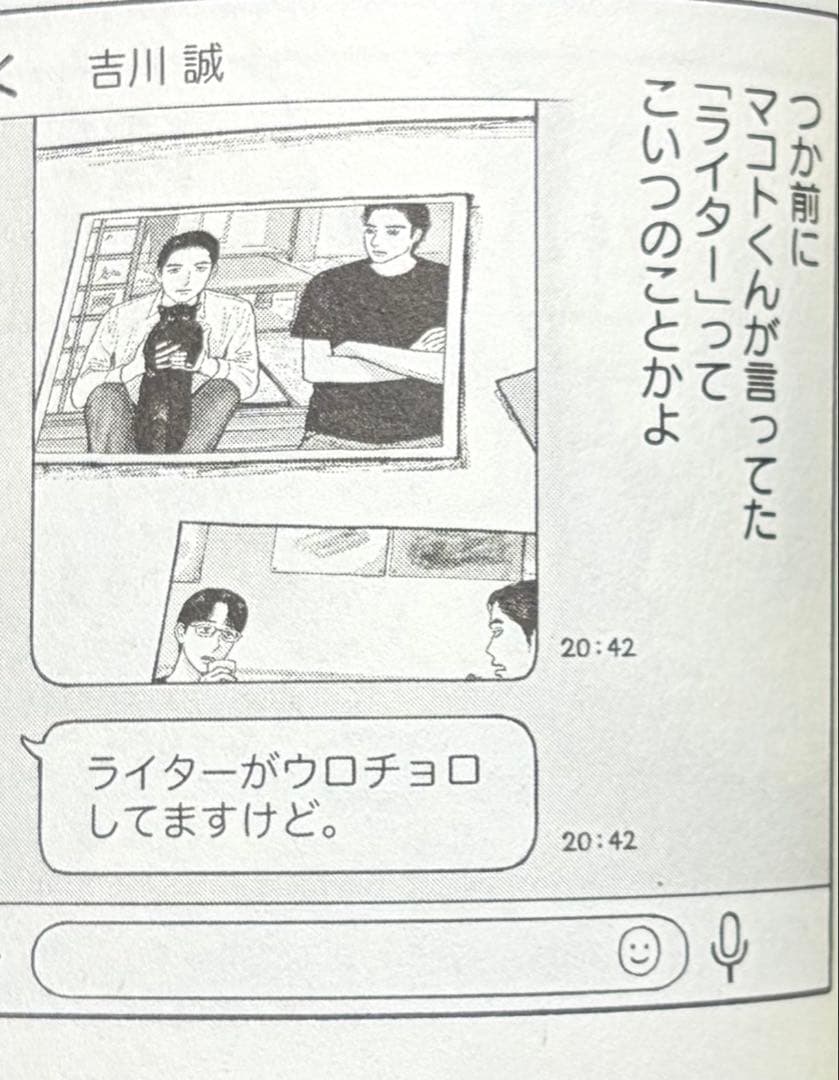 吉川 誠
つか前に
マコトくんが言ってた
「ライター」って
こいつのことかよ
20:42
ライターがウロチョロ
してますけど。
20:42